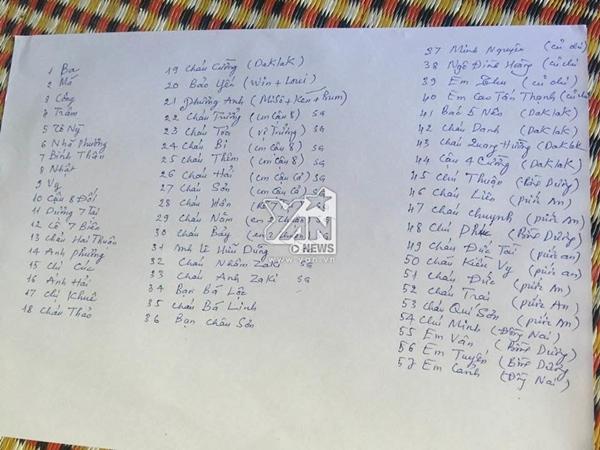 1 Ba
2 Má
3 Công
4 Trâm
5 Tê Ny
6 Nhã Phương
7 Bình Thận
8 Nhật
9 Vy
10 Cậu 8 Đối
11 Dượng 7 Tài
12 Cô 7 Biên
13 Cháu Hai Thuận
14 Anh Phương
15 Chị Cúc
16 Anh Hải
17 Chị Khuê
18 Cháu Thảo
19 Cháu Cường (DakLak)
20 Bảo Yến (Win + Loui)
21 Phương Anh (Misô + Ken + Bum)
22 Cháu Trưởng (cm Cậu 8) SG
23 Cháu Toà (vợ Trưởng) SG
24 Cháu Bi (cm Cậu 8) SG
25 Cháu Thêm (cm Cậu 8) SG
26 Cháu Hải (cm Cậu Cả) SG
27 Cháu Sơn (cm Cậu Cả) SG
28 Cháu Hân
29 Cháu Năm
30 Cháu Bảy
31 Anh Lê Hữu Dũng
32 Cháu Nhâm Zaki SG
33 Cháu Anh Zaki SG
34 Bạn Bá Lộc
35 Cháu Bá Linh
36 Bạn Châu Sơn
37 Minh Nguyên (củ chi)
38 Ngô Đình Hoàng (củ chi)
39 Em Thu (củ chi)
40 Em Cao Tấn Thạnh (củ chi)
41 Bác 5 Nên (Daklak)
42 Cháu Danh (Daklak)
43 Cháu Quang Hưởng (Daklak)
44 Cậu 4 Cường (Daklak)
45 Chú Thuận (Bình Dương)
46 Cháu Liên (phước An)
47 Cháu Chuynh (phước An)
48 Chú Phúc (Bình Dương)
49 Cháu Đức Tài (phước an)
50 Cháu Kiều Vy (phước an)
51 Cháu Đức (phước An)
52 Cháu Trai (phước An)
53 Cháu Quí Sơn (phước An)
54 Chú Minh (Đồng Nai)
55 Em Vân (Bình Dương)
56 Em Tuyến (Bình Dương)
57 Em Cảnh (Đồng Nai)
YAN
NEWS
www.yan.vn